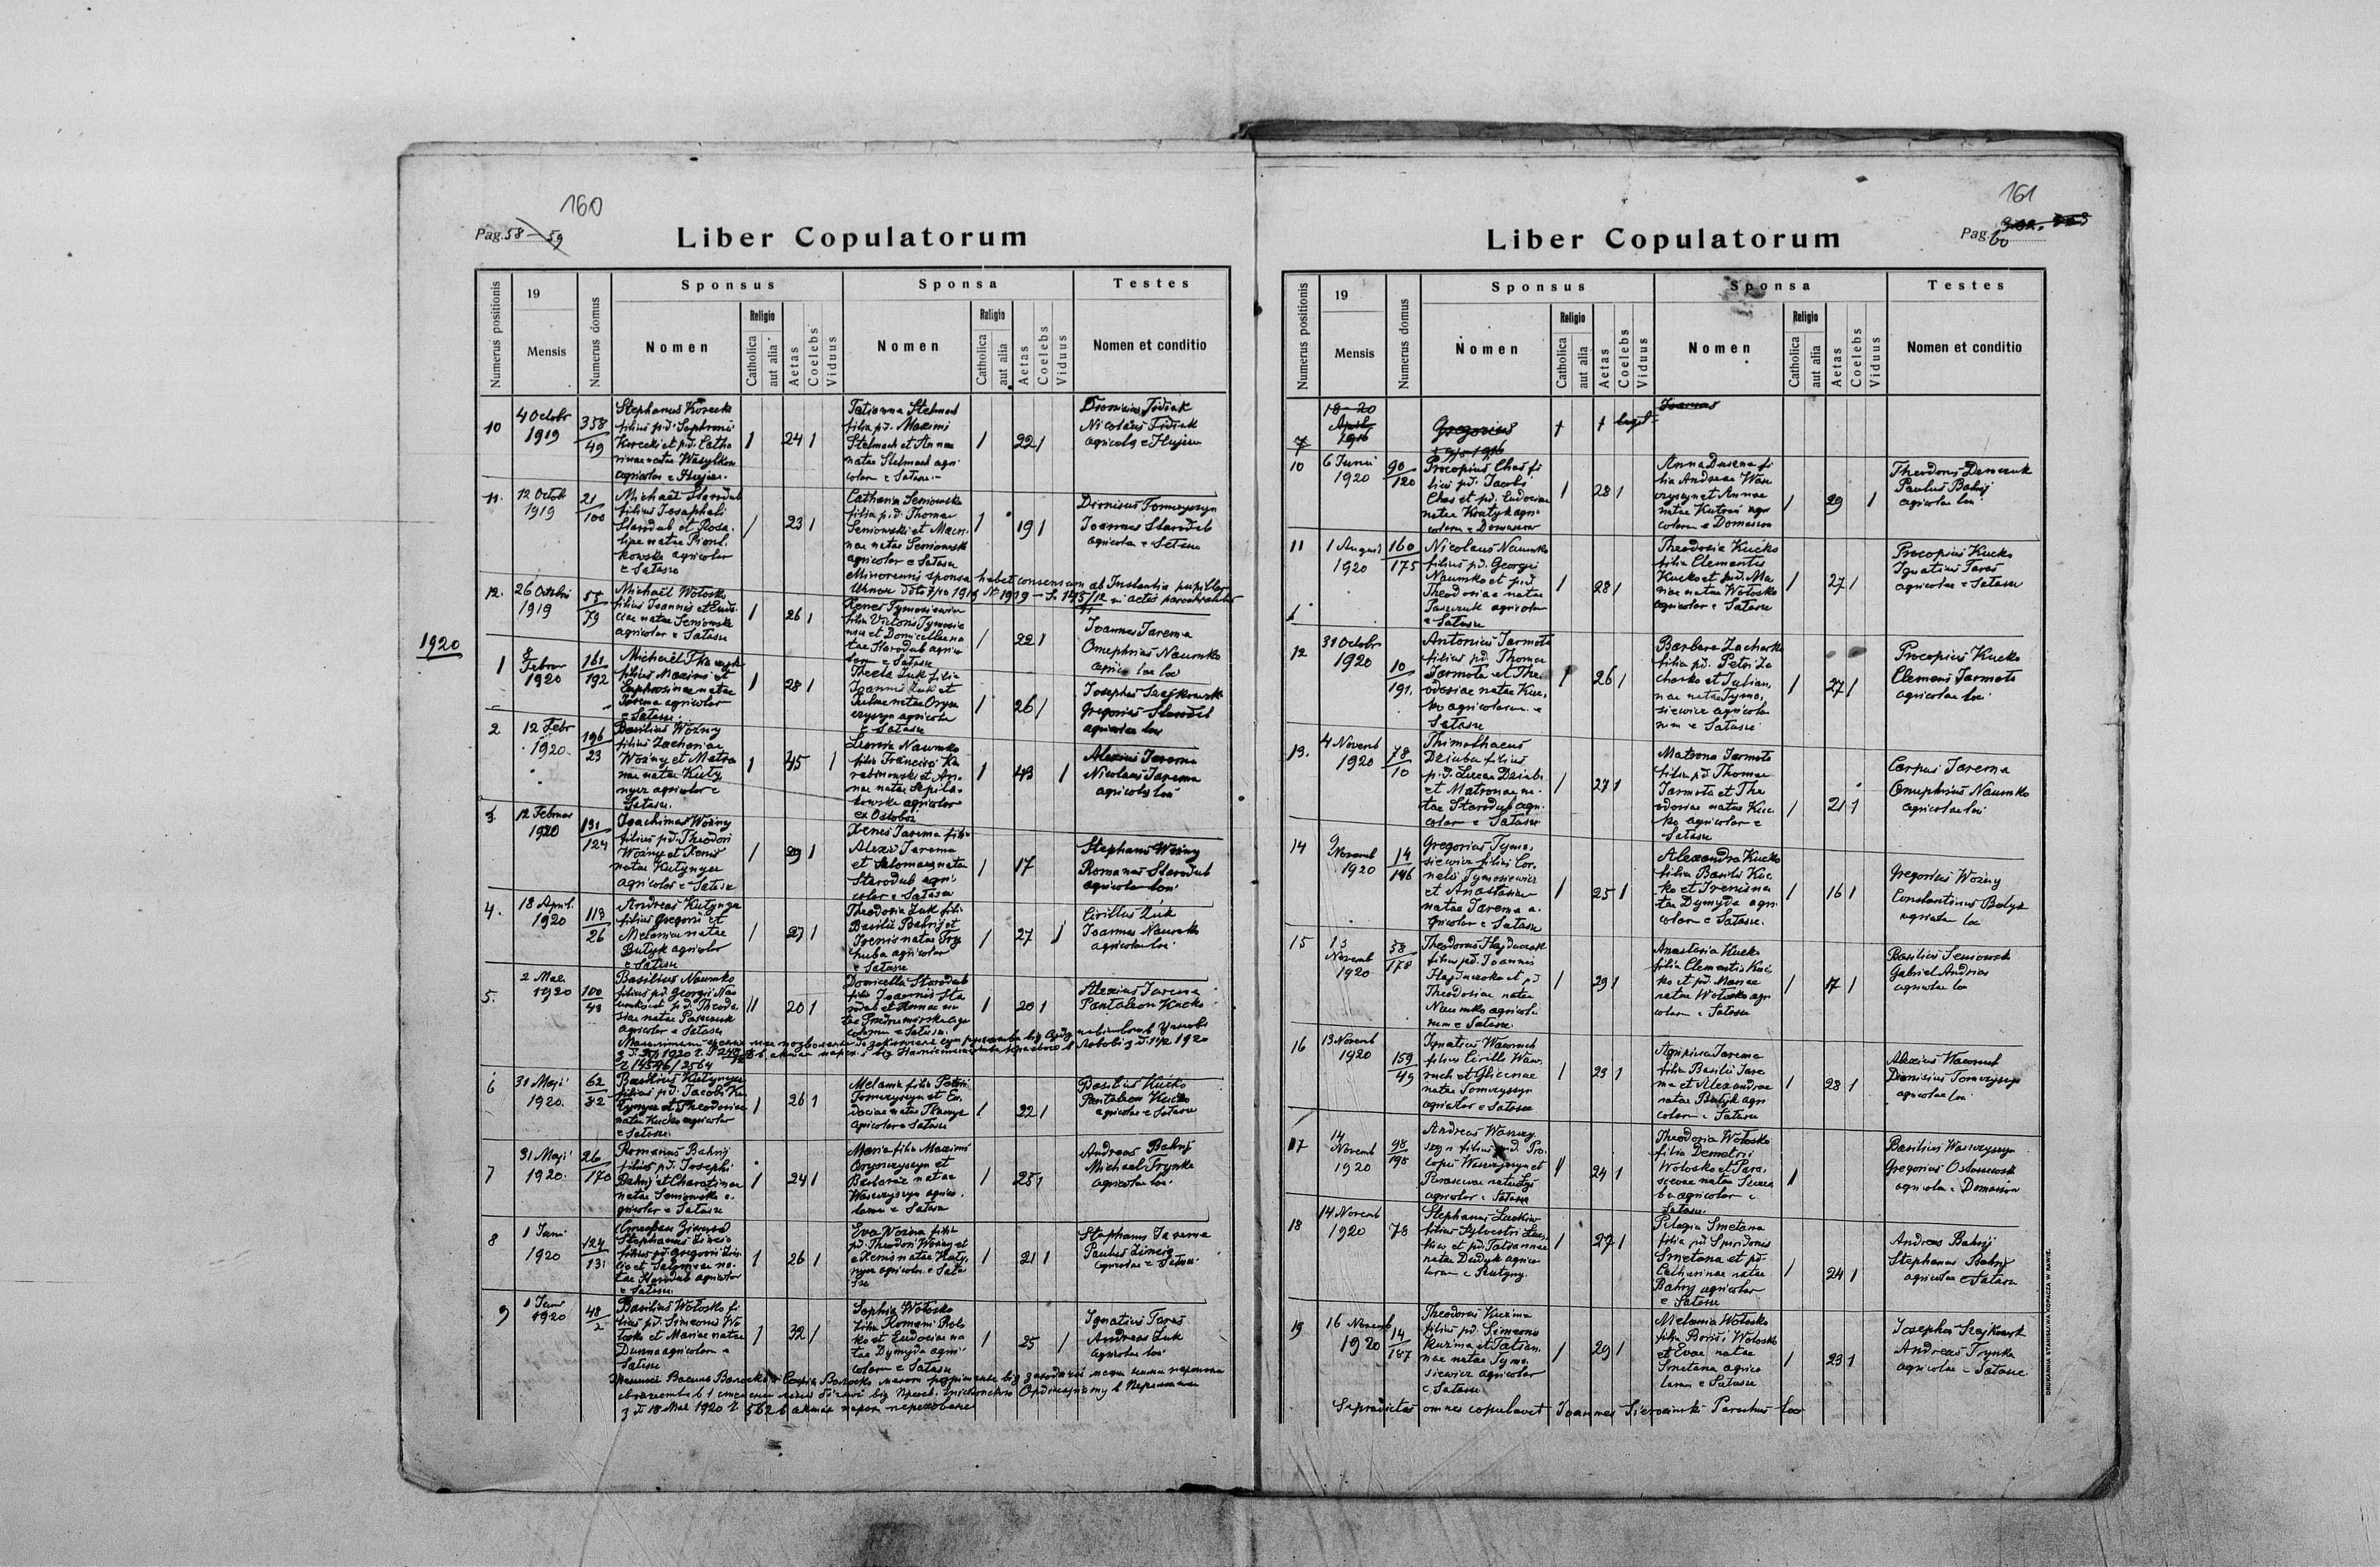 160
Pag. 58 - 59
Liber Copulatorum
Numerus positionis
19
Mensis
Numerus domus
Sponsus
Nomen
Religio
Catholica
aut alia
Aetas
Coelebs
Viduus
Sponsa
Nomen
Religio
Catholica
aut alia
Aetas
Coelebs
Viduus
Testes
Nomen et conditio
10
4 Octobr
1919
358
49
Stephanus Korecki
filius p.d. Sophronii
Korecki et p.d. Catha
rinae natae Wasylkow
agricolar e Hujcze
24
Tatianna Stelmach
filia p.d. Maximi
Stelmach et Annae
natae Stelmach agri
colar e Satasze
22
Dionisius Fidiak
Nicolaus Fidiak
agricola e Hujcze
11.
12 Octob
1919
21
100
Michaël Starodub
filius Josaphati
Starodub et Rosa
liae natae Piont
kowska agricolar
e Satasze
23
Catharia Seniowska
filia p.d. Thomae
Seniowski et Macri
nae natae Seniowsk
agricolar e Satasze
19
Dionisius Tomczyszyn
Joannes Starodub
agricolae e Satasze
Minorennis sponsa habet consensum ab Instantia pupillar
12.
26 Octobri
1919
79
Michaël Wołosko
filius Joannis et Eudo
ciae natae Seniowska
agricolar e Satasze
26
Xenes Tymosiewicz
filia Victoris Tymosie
wicz et Domicellae na
tae Starodub agrico
lar e Satasze
22
Joannes Jarema
Onuphrius Naumko
agricolae loci
1920
1
8
Februar
1920
161
192
Michaël Tkaczyk
filius Maximi et
Euphrosinae natae
Jarema agricolar
e Satasze
28
Thecla Żuk filia
Joannis Żuk et
Juliae natae Orysz
czyszyn agricola
e Satasze
26
Josephus Szajkowsk
Gregorius Starodub
agricolae loci
2
12 Febr
1920
196
23
Basilius Woźny
filius Zachariae
Woźny et Matro
nae natae Kuty
nycz agricolar e
Satasze
45
Naumko
filia Francisci Ka
rabinowski et An
nae natae Szpila
kowska agricolar
ex Ostobuż
43
Alexius Jarema
Nicolaus Jarema
agricolae loci
3.
12 Februar
1920
131
124
Joachimus Woźny
filius p.d. Theodori
Woźny et Xenis
natae Kutynycz
agricolar e Satasze
29
Xenes Jarema filia
Alexii Jarema
et Salomeae natae
Starodub agri
colar e Satasze
17
Stephanus Woźny
Romanus Starodub
agricolae loci
4.
18 April.
1920
113
26
Andreas Kutynycz
filius Gregorii et
Melaniae natae
Butyk agricolar
e Satasze
27
Theodosia Żuk filia
Basilii Bahrij et
Irenis natae Try
huba agricolar
e Satasze
27
Cirillus Żuk
Joannes Naumko
agricolae loci
5.
2 Maii
1920
100
43
Basilius Naumko
filius p.d. Georgii Nau
mko et p.d. Theodo
siae natae Paszczuk
agricolar e Satasze
20
Domicella Starodub
filia Joannis Sta
rodub et Annae na
colarum e Satasze
20
Alexius Jarema
Pantaleon Kućko
6
30 Maji
1920.
62
32
Basilius Kutynycz
filius p.d. Jacobi Ku
tynycz et Theodosiae
natae Kućko agricolar
e Satasze
26
Melania filia Petri
Tomczyszyn et Eu
dociae natae Tkaczyk
agricolar e Satasze
22
Basilius Kućko
Pantaleon Kućko
agricolae e Satasze
7
31 Maji
1920.
26
170
Romanus Bahrij
filius p.d. Josephi
Bahrij et Charitinae
natae Seniowska a
gricolar e Satasze
24
Maria filia Maximi
Oryszczyszyn et
Barbarae natae
Waszczyszyn agrico
larum e Satasze
25
Andreas Bahrij
Michael Trynka
agricolae loci
8
1 Juni
1920
124
131
Stephanus Zincio
filius p.d. Gregorii Zin
cio et Salomeae na
tae Starodub agricolar
e Satasze
26
Eva Woźna filia
p.d. Theodori Woźny et
Xenis natae Kuty
nycz agricolar e Sata
sze
21
Stephanus Jarema
Paulus Zincio
agricolae e Satasze
9
1 Juni
1920
48
2
Basilius Wołosko fi
lius p.d. Simeonis Wo
łosko et Mariae natae
Durma agricolarum e
Satasze
32
Sophia Wołosko
filia Romani Bob
ko et Eudociae na
tae Dymyda agri
colarum e Satasze
25
Ignatius Taras
Andreas Żuk
agricolae loci
161
Pag. 60
Liber Copulatorum
Numerus positionis
19
Mensis
Numerus domus
Sponsus
Nomen
Religio
Catholica
aut alia
Aetas
Coelebs
Viduus
Sponsa
Nomen
Religio
Catholica
aut alia
Aetas
Coelebs
Viduus
Testes
Nomen et conditio
7
18-20
April
1916
Gregorius
Joannes
10
6 Junii
1920
90
120
Procopius Chas fi
lius p.d. Jacobi
Chas et p.d. Eudociae
natae Kratyk agri
colarum e Domaszow
28
Anna Duszna fi
lia Andreae Wasz
czyszyn et Annae
natae Kutrań agri
colarum e Domaszow
29
Theodorus Demczuk
Paulus Bahrij
agricolae loci
11
1 Augusti
1920
160
175
Nicolaus Naumko
filius p.d. Georgii
Naumko et p.d.
Theodosiae natae
Paszczuk agricolar
e Satasze
28
Theodosia Kućko
filia Clementis
Kućko et p.d. Ma
riae natae Wołosko
agricolar e Satasze
27
Procopius Kućko
Ignatius Taras
agricolae e Satasze
12
31 Octobr
1920
10
191.
Antonius Jarmoła
filius p.d. Thomae
Jarmoła et The
odosiae natae Kuc
ko agricolarum e
Satasze
26
Barbara Zacharko
filia p.d. Petri Za
charko et Julian
nae natae Tymo
siewicz agricola
rum e Satasze
27
Procopius Kućko
Clemens Jarmoła
agricolae loci
13.
4 Novemb
1920
78
10
Thimotheus
Dziuba filius
p.d. Lucae Dziuba
et Matronae na
tae Starodub agri
colar e Satasze
27
Matrona Jarmoła
filia p.d. Thomae
Jarmoła et The
odosiae natae Kuc
ko agricolar e
Satasze
21
Carpus Jarema
Onuphrius Naumko
agricolae loci
14
9
Novemb
1920
14
146
Gregorius Tymo
siewicz filius Cor
nelii Tymosiewicz
et Anastasiae
natae Jarema a
gricolar e Satasze
25
Alexandra Kućko
filia Basilii Kuc
ko et Irenis na
tae Dymyda agri
colarum e Satasze.
16
Gregorius Woźny
Constantinus Butyk
agricolae loci
15
13
Novemb
1920
58
178
Theodorus Hajduczok
filius p.d. Joannis
Hajduczoka et p.d.
Theodosiae natae
Naumko agricola
rum e Satasze.
29
Anastasia Kućko
filia Clementis Kuć
ko et p.d. Mariae
natae Wołosko agri
colarum e Satasze
17
Basilius Seniowsk
Gabriel Andrias
agricolae loci
16
13 Novemb
1920
159
49
Ignatius Wawruch
filius Cirilli Waw
ruch et Gliceriae
natae Tomczyszyn
agricolar e Satasze
23
Agripina Jarema
filia Basilii Jare
ma et Alexandrae
natae Butyk agri
colarum e Satasze
28
Alexius Wawruch
Dionisius Tomczyszyn
agricolae loci
17
14
Novemb
1920
98
198
Andreas Waszczy
szyn filius p.d. Pro
copii Waszczyszyn et
Parascevae natae
agricolar e Satasze
24
Theodosia Wołosko
filia Demetrii
Wołosko et Para
scevae natae
agricolar e
Satasze
Basilius Waszczyszyn
Gregorius Ostaszewsk
agricolae e Domaszow
18
14 Novemb
1920
78
Stephanus Luckiw
filius Sylvestri Luc
kiw et p.d. Tatiannae
natae Deduk agrico
larum e Rzutyny.
27
Pelagia Smetana
filia p.d. Spiridonis
Smetana et p.d.
Catharinae natae
Bahrij agricolar
e Satasze
24
Andreas Bahrij
Stephanus Bahrij
agricolae e Satasze
19
16 Novemb
1920
14
187
Theodorus Kuzma
filius p.d. Simeonis
Kuzma et Tatian
nae natae Tymo
siewicz agricolar
e Satasze
29
Melania Wołosko
filia Boris Wołosko
et Evae natae
Smetana agrico
larum e Satasze
23
Josephus Szajkowsk
Andreas Trynka
agricolae e Satasze
Supradictos omnes copulavit Joannes Sierocinski Parochus loci
DRUKARNIA STANISŁAWA KOPACZA W RAWIE.